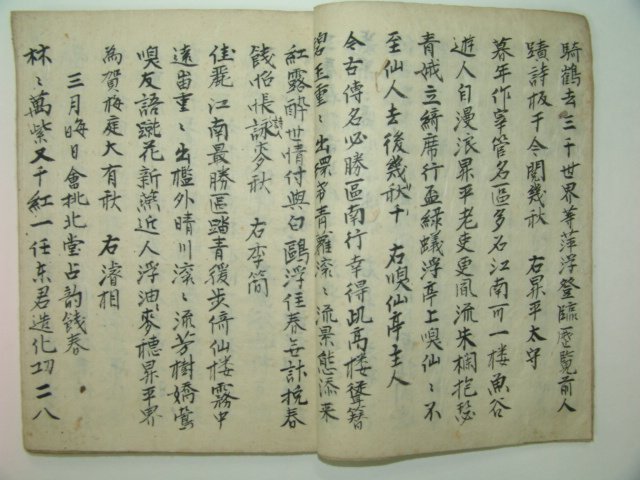 騎鶴去三千世界等萍浮登臨歷覽前人
蹟詩板千今閱幾秋 右昇平太守
暮年作宰管名區多名江南可一樓魚谷
遊人自漫浪昇平老吏更風流朱欄抱瑟
青娥立綺席行盃綠蟻浮亭上喚仙〻不
至仙人去後幾秋千 右喚仙亭主人
今古傳名必勝區南行幸得此高樓聳簪
碧玉重〻出深帶青羅滾〻流景態添來
紅露醉世情付與白鷗浮佳春無計挽春
餞怊悵詩詠麥秋 右李簡
佳麗江南最勝區踏青緩步倚仙樓霧中
遠峀重〻出檻外晴川滾〻流芳樹嬌鶯
嗅友語蹴花新燕近人浮油〻麥穗昇平界
為賀梅庭大有秋 右濬相
三月晦日會挑北堂占韵餞春
林〻萬紫又千紅一任東君造化功二八